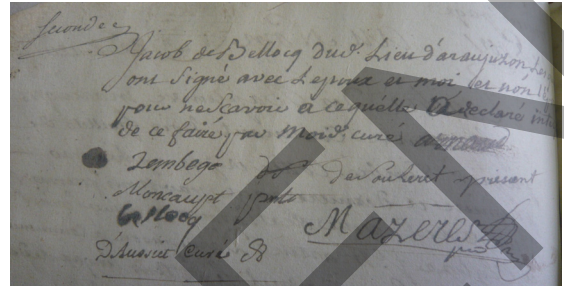 seconde
Jacob de Bellocq dud. Lieu d'araujuzon
ont signé avec Lepoux et moi et non
pour ne scavoir a ce quelle a declaré inte
de ce faire par moid. curé
Lembege de Souleret présent
Moncaupt pnt
Bellocq Mazeres
curé